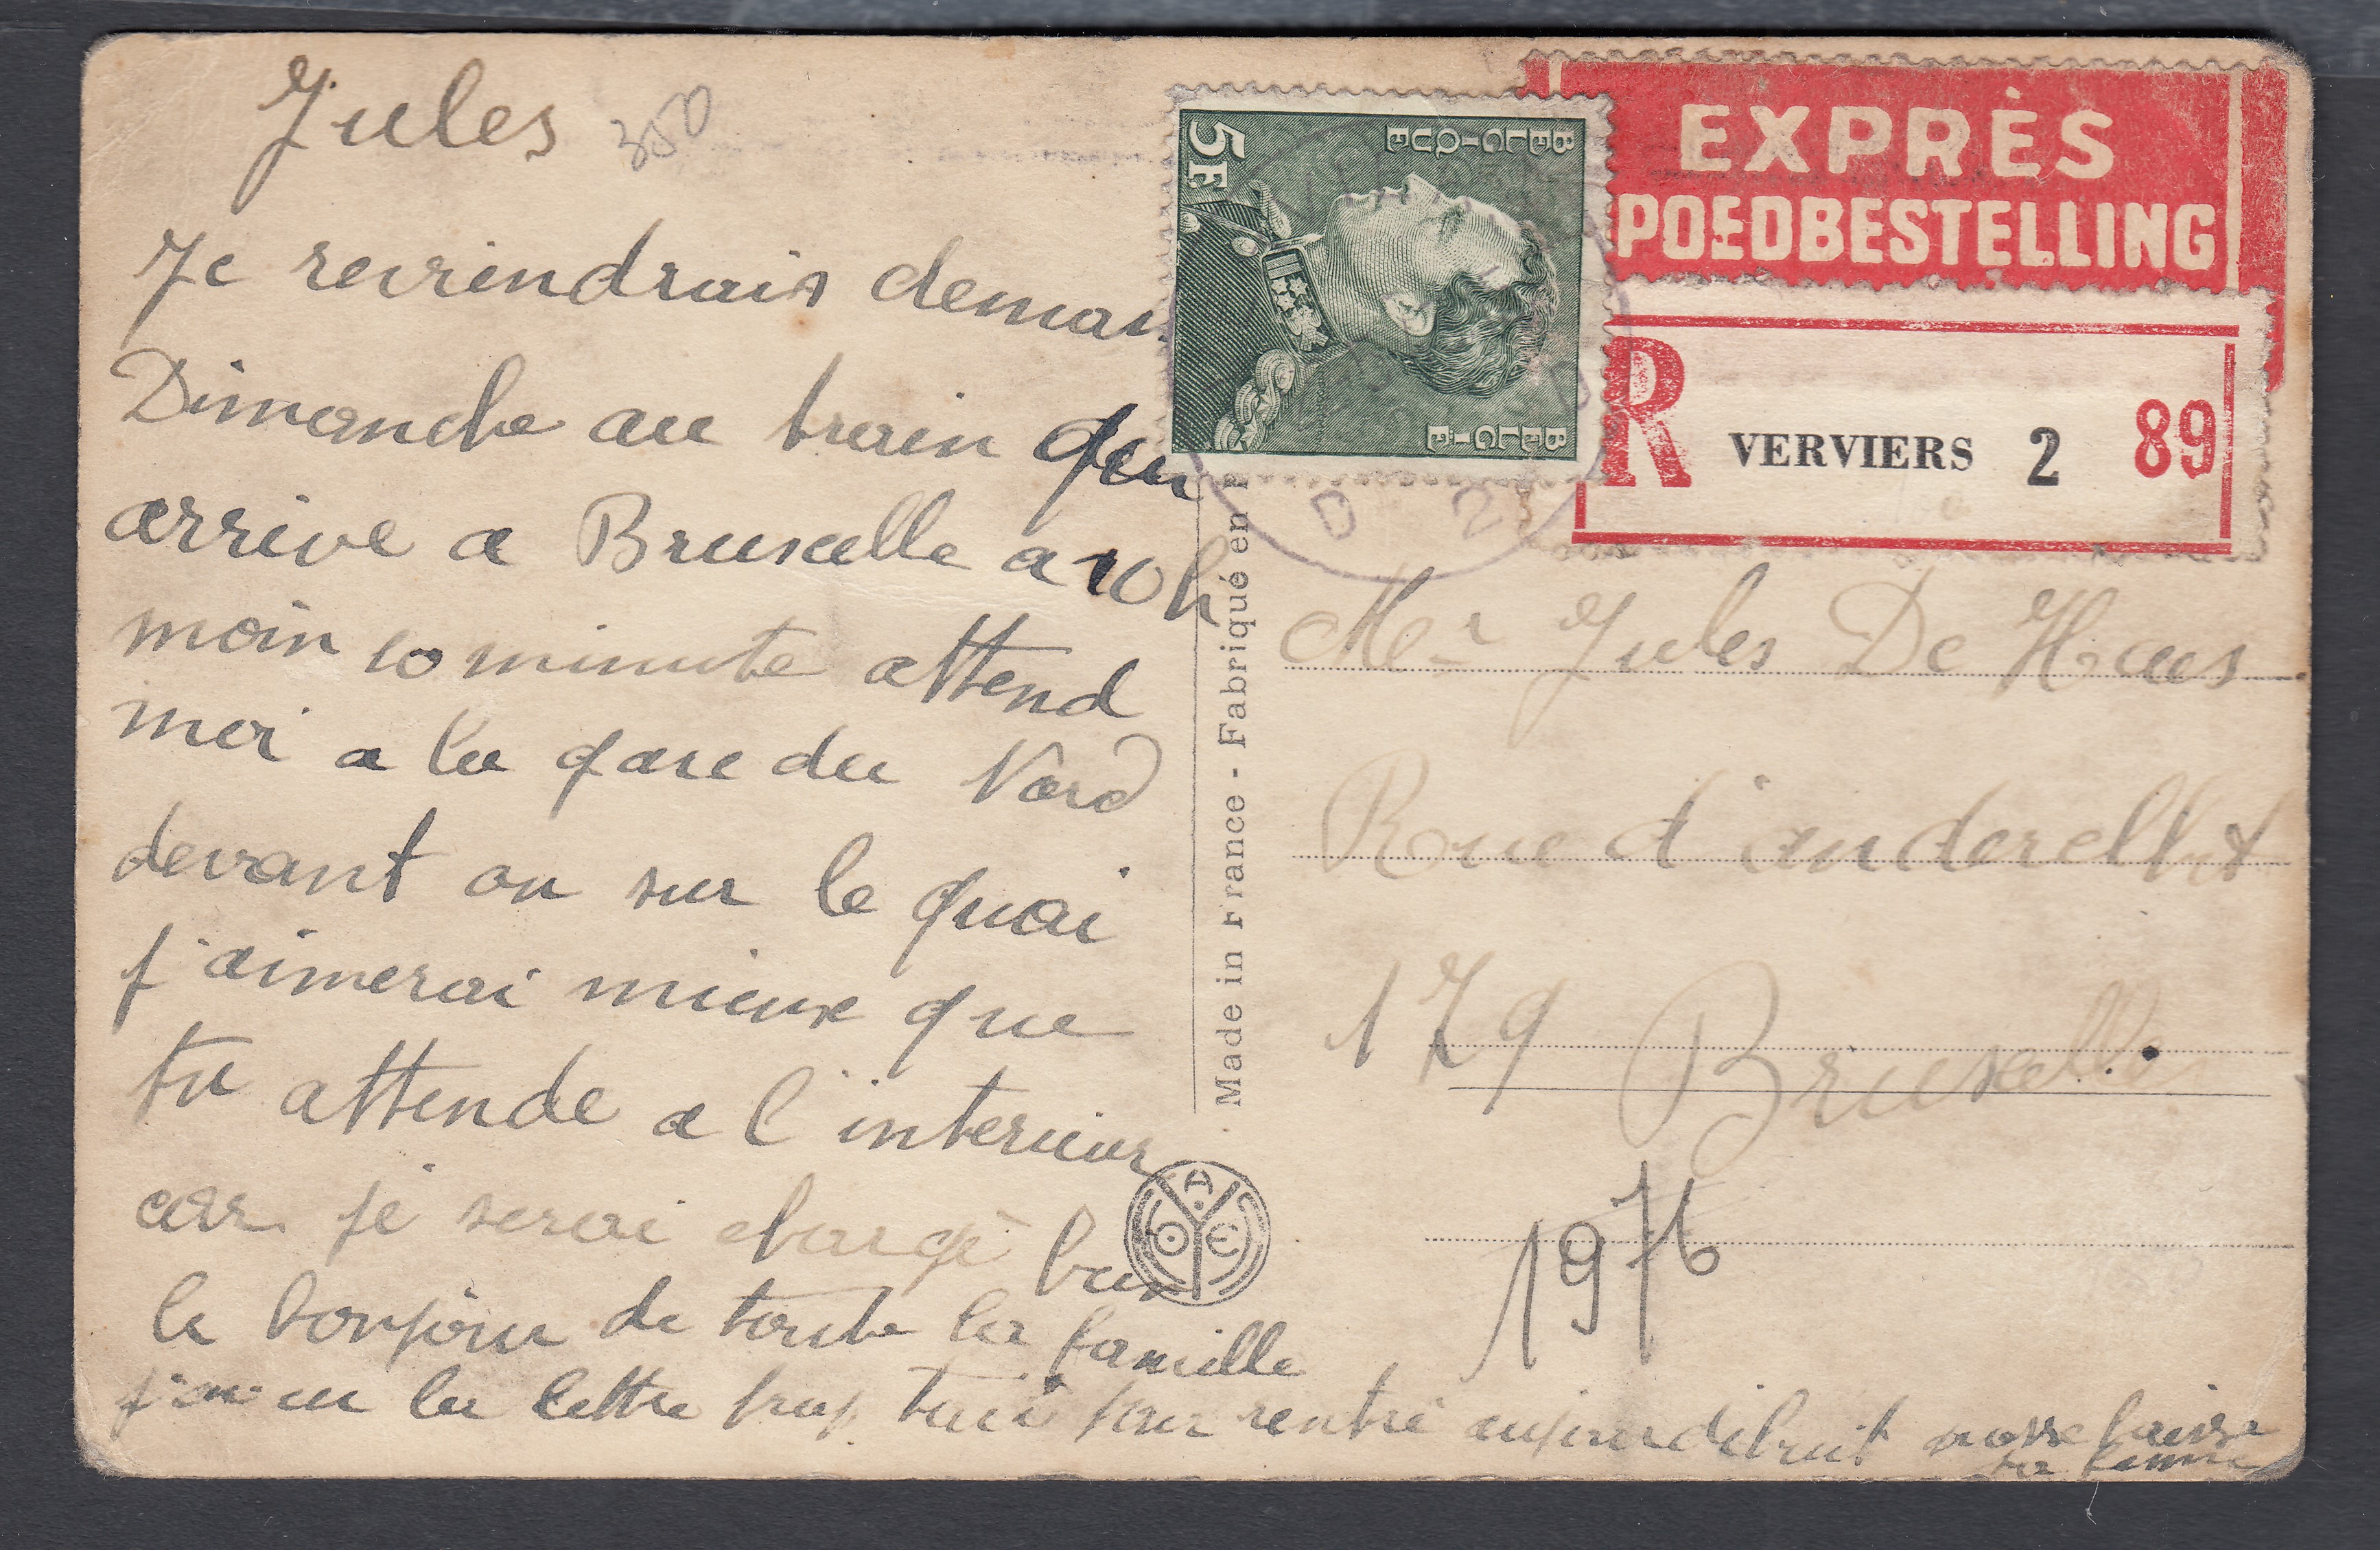 Jules
350
Je reviendrais deman
Dimanche au train qui
arrive a Bruxelle a 10 h
moin 10 minute attend
moi a la gare du Nord
devant ou sur le quai
j'aimerai mieux que
tu attende a l'interieur
car je serai chargé
le bonjour de toute la famille
j'ai eu la lettre trop tard pour rentré
BELGIQUE
5F
BELGIE
D 2
EXPRÈS
POEDBESTELLING
R VERVIERS 2 89
Made in France - Fabriqué en F
Mer Jules De Haes
Rue d'anderelht
179 Bruxelle
1976